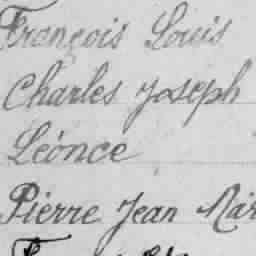 François Louis
Charles Joseph
Léonce
Pierre Jean